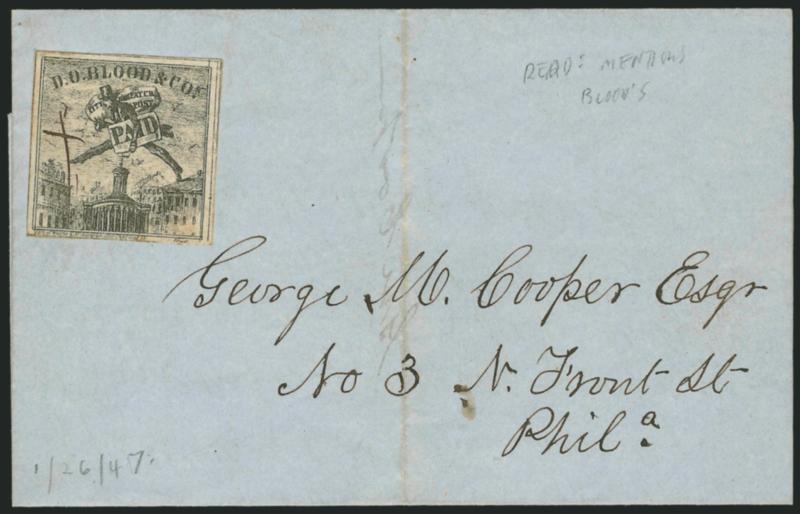 D.O. BLOOD & Co's
CITY DESPATCH
POST
PAID
READ: MENTIONS
BLOOD'S
George M. Cooper Esqr
No 3 N. Front St
Phila.
1/26/47.